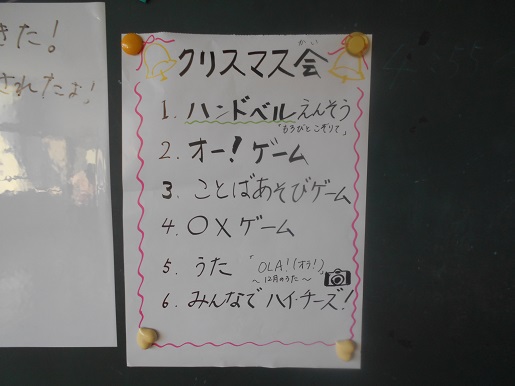 きた!
されたよ!
クリスマス会
かい
1. ハンドベルえんそう
「もろびとこぞりて」
2. オー!ゲーム
3. ことばあそびゲーム
4. ○×ゲーム
5. うた 「OLA!(オラ!)」
～12月のうた～
6. みんなでハイ・チーズ!